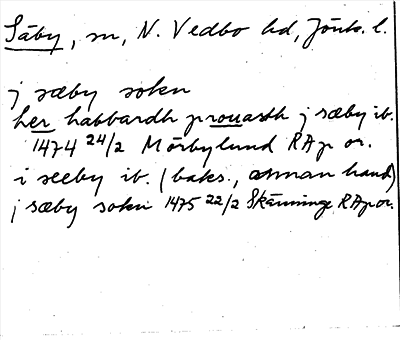 Säby, sn, N. Vedbo hd, Jönk. l.
j sæby sokn
her habbardh prouasth j sæby ib.
1474 24/2 Mörbylund RAp or.
i seeby ib. (baks., annan hand)
j sæby sokn 1475 22/2 Skänninge RAp or.